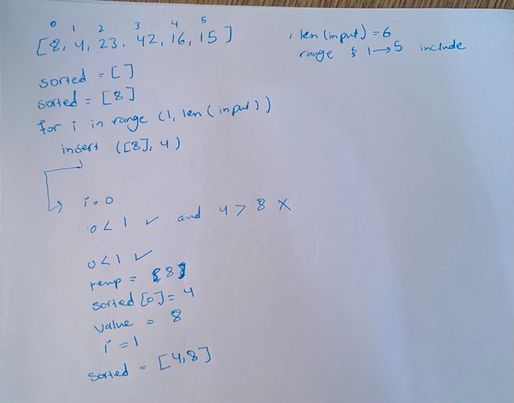 0 1 2 3 4 5
[8, 4, 23, 42, 16, 15]
, len(input) = 6
range 1→5 include
sorted = []
sorted = [8]
for i in range (1, len(input))
insert ([8], 4)
i = 0
0 < 1 ✓ and 4 > 8 X
0 < 1 ✓
temp = 8
sorted [0] = 4
value = 8
i = 1
sorted = [4,8]